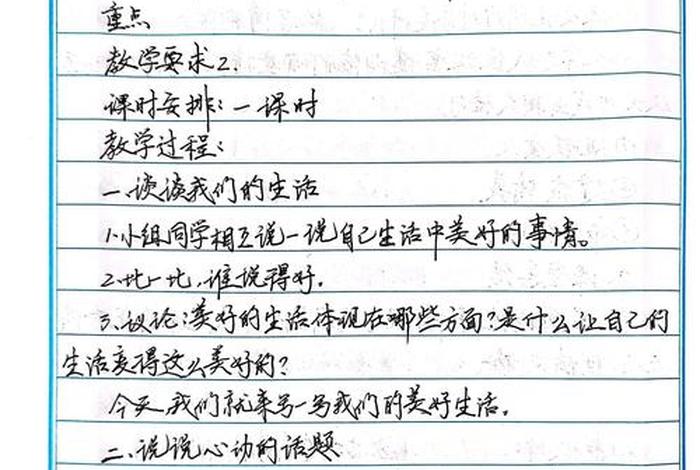 重点
教学要求2.
课时安排:一课时
教学过程:
一.谈谈我们的生活
1.小组同学相互说一说自己生活中美好的事情。
2.比一比,谁说得好.
3.议论:美好的生活体现在哪些方面?是什么让自己的
生活变得这么美好的?
今天,我们就来写一写我们的美好生活。
二.说说心动的话题